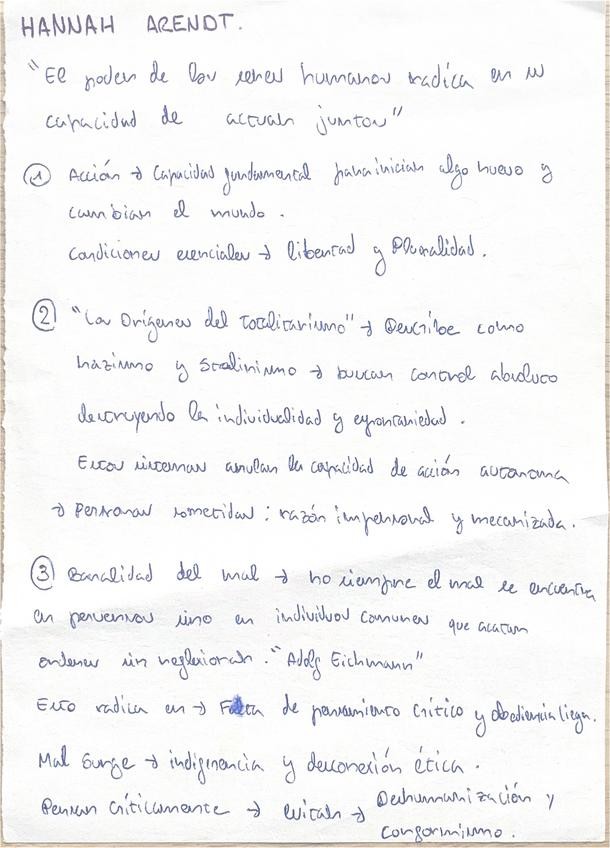 HANNAH ARENDT.
"El poder de los seres humanos radica en su
capacidad de actuar juntos"
① Acción → Capacidad fundamental para iniciar algo nuevo y
cambiar el mundo.
Condiciones esenciales → libertad y Pluralidad.
② "Los Orígenes del Totalitarismo" → Describe como
nazismo y Stalinismo → buscan control absoluto
destruyendo la individualidad y espontaniedad.
Estos sistemas anulan la capacidad de acción autonoma
→ Personas sometidas: razón impersonal y mecanizada.
③ Banalidad del mal → no siempre el mal se encuentra
en perversos sino en individuos comunes que acatan
ordenes sin reflexionar. "Adolf Eichmann"
Esto radica en → Falta de pensamiento crítico y obediencia ciega.
Mal surge → indiferencia y desconexión ética.
Pensar críticamente → evitar → Deshumanización y
conformismo.